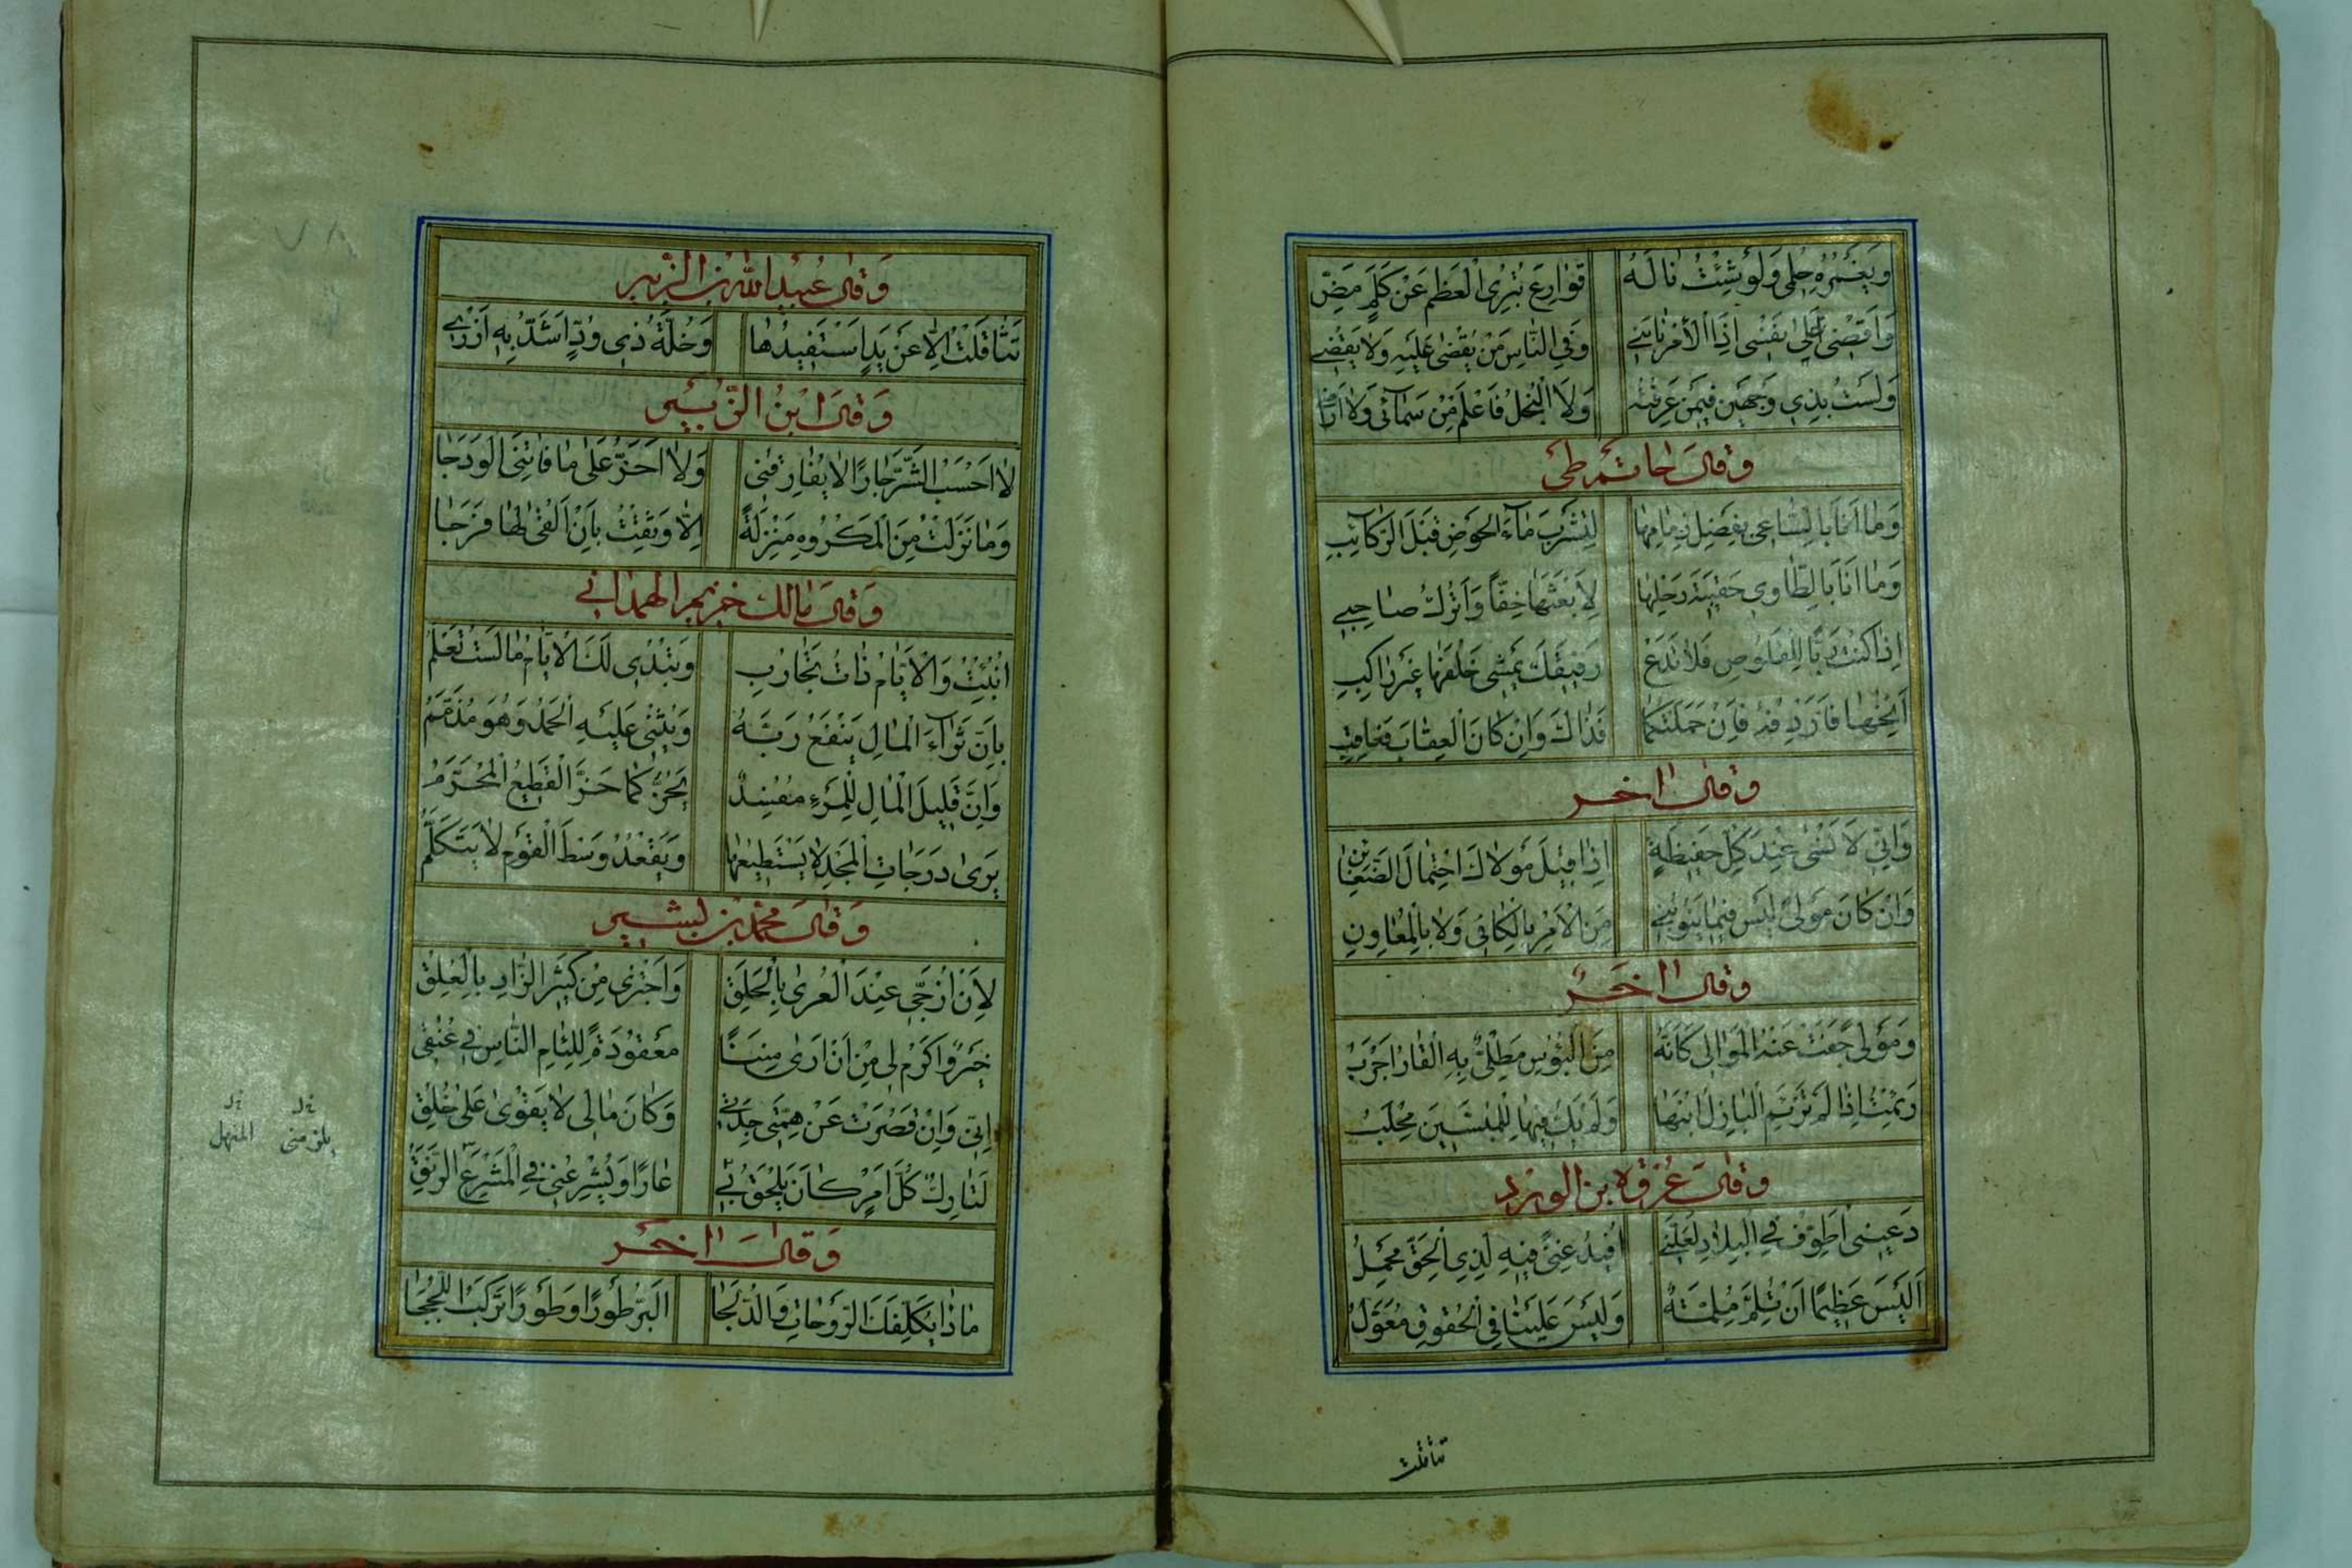 وَيَغْمُرُهُ حِلْمى وَلَوْ شِئْتُ نٰالَهُ قَوٰارِعُ تُبْرِى الْعَظْمَ عَنْ كَلِمٍ مَضِّ
وَاَقْضِى عَلىٰ نَفْسِى اِذَا الْاَمْرُ نٰابَنِى وَفِى النّٰاسِ مَنْ يُقْضىٰ عَلَيْهِ وَلاٰ يَقْضِى
وَلَسْتُ بِذِى وَجْهَيْنِ فِيمَنْ عَرِفْتُهُ وَلاَ الْبُخْلُ فَاعْلَمْ مِنْ سَمٰآئى وَلاٰ اَرْضى
وقال حاتم طى
وَمٰا اَنَا بِالسّٰاعِى بِفَضْلِ زِمٰامِهٰا لِتَشْرَبَ مٰآءَ الْحَوْضِ قَبْلَ الرَّكٰآئِبِ
وَمٰا اَنَا بِالطّٰاوِى حَقِيبَةَ رَحْلِهٰا لِاَبْعَثَهٰا خِفًّا وَاَتْرُكَ صٰاحِبِى
اِذٰا كُنْتَ رَبًّا لِلْقَلُوصِ فَلاٰ تَدَعْ رَفِيقَكَ يَمْشِى خَلْفَهٰا غَيْرَ رٰاكِبِ
اَنِخْهٰا فَاَرْدِفْهُ فَاِنْ حَمَلَتْكُمٰا فَذٰاكَ وَاِنْ كٰانَ الْعِقٰابُ فَعٰاقِبِ
وقال اخر
وَاِنّى لَاَنْسىٰ عِنْدَ كُلِّ حَفِيظَةٍ اِذٰا قِيلَ مَوْلاٰكَ احْتِمٰالَ الضَّغٰائِنِ
وَاِنْ كٰانَ مَوْلىً لَيْسَ فِيمٰا يَنُوبُنِى مِنَ الْاَمْرِ بِالْكٰافِى وَلاٰ بِالْمُعٰاوِنِ
وقال اخر
وَمَوْلىً جَفَتْ عَنْهُ الْمَوٰالِى كَاَنَّهُ مِنَ الْبُؤْسِ مَطْلِىٌّ بِهِ الْقٰارُ اَجْرَبُ
رَئِمْتُ اِذٰا لَمْ تَرْئَمِ الْبٰازِلُ ابْنَهٰا وَلَمْ يَكُ فِيهٰا لِلْمُبِسّينَ مَحْلَبُ
وقال عروة بن الورد
دَعِينِى اُطَوِّفْ فِى الْبِلاٰدِ لَعَلَّنِى اُفِيدُ غِنىً فِيهِ لِذِى الْحَقِّ مَحْمِلُ
اَلَيْسَ عَظِيمًا اَنْ تُلِمَّ مُلِمَّةٌ وَلَيْسَ عَلَيْنٰا فِى الْحُقُوقِ مُعَوَّلُ
تثاقلت
وَقال عبد الله بن الزبير
تَثٰاقَلْتُ اِلاّٰ عَنْ يَدٍ اَسْتَفِيدُهٰا وَخُلَّةِ ذِى وُدٍّ اَشُدُّ بِهِ اَزْرِى
وَقالَ ابْنُ الزّبير
لاٰ اَحْسَبُ الشَّرَّ جٰارًا لاٰ يُفٰارِقُنى وَلاٰ اَحُزُّ عَلىٰ مٰا فٰاتَنِىَ الْوَدَجٰا
وَمٰا نَزَلْتُ مِنَ الْمَكْرُوهِ مَنْزِلَةً اِلاّٰ وَثِقْتُ بِاَنْ اَلْقىٰ لَهٰا فَرَجٰا
وَقالَ مالك بن حريم الهمدانى
اُنْبِئْتُ وَالْاَيّٰامُ ذٰاتُ تَجٰارُبِ وَتُبْدِى لَكَ الْاَيّٰامُ مٰا لَسْتَ تَعْلَمُ
بِاَنَّ ثَرٰآءَ الْمٰالِ يَنْفَعُ رَبَّهُ وَيُثْنى عَلَيْهِ الْحَمْدُ وَهُوَ مُذَمَّمُ
وَاِنَّ قَلِيلَ الْمٰالِ لِلْمَرْءِ مُفْسِدٌ يَحُزُّ كَمٰا حَزَّ الْقَطِيعُ الْمُحَرَّمُ
يَرىٰ دَرَجٰاتِ الْمَجْدِ لاٰ يَسْتَطِيعُهٰا وَيَقْعُدُ وَسْطَ الْقَوْمِ لاٰ يَتَكَلَّمُ
وَقال محمد بن بشير
لَاَنْ اُزَجِّى عِنْدَ الْعُرىٰ بِالْخَلَقِ وَاَجْتَزِى مِنْ كَثِيرِ الزّٰادِ بِالْعُلَقِ
خَيْرٌ وَاَكْرَمُ لِى مِنْ اَنْ اَرىٰ مِنَنًا مَعْقُودَةً لِلِئٰامِ النّٰاسِ فِى عُنُقِى
اِنّى وَاِنْ قَصُرَتْ عَنْ هِمَّتِى جِدَتِى وَكٰانَ مٰالِى لاٰ يَقْوىٰ عَلىٰ خُلُقِى
لَتٰارِكٌ كُلَّ اَمْرٍ كٰانَ يُلْحِقُ بِى عٰارًا وَيُشْرِعُنِى فِى الْمَشْرَعِ الرَّنِقِ
يلزمنى
المنهل
وَقالَ اخر
مٰاذٰا يُكَلِّفُكَ الرَّوْحٰاتِ وَالدُّلَجٰا اَلْبَرَّ طَوْرًا وَطَوْرًا تَرْكَبُ اللُّجَجٰا